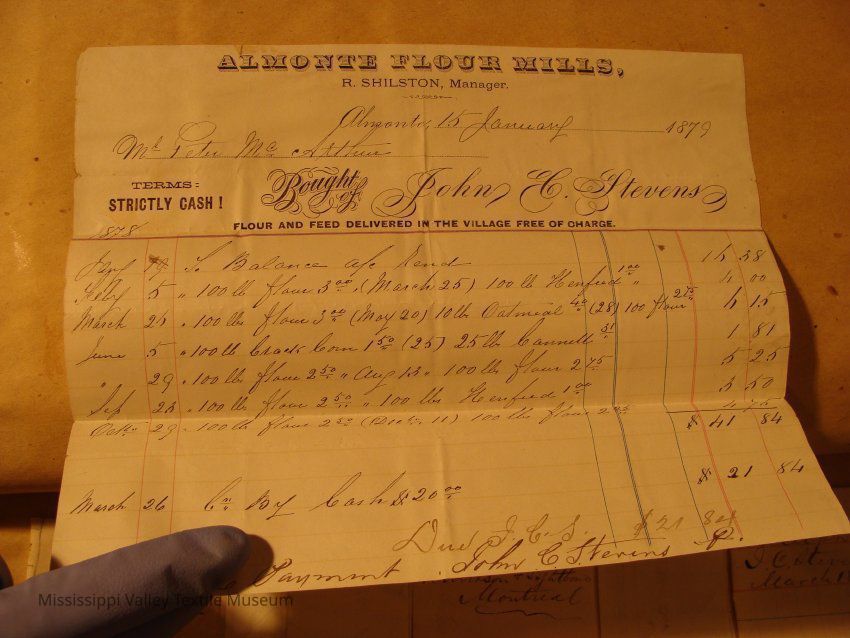 ALMONTE FLOUR MILLS,
R. SHILSTON, Manager.
Almonte, 15 January 1879
Mr. Peter Mc Arthur
TERMS: STRICTLY CASH!
Bought of John C. Stevens
FLOUR AND FEED DELIVERED IN THE VILLAGE FREE OF CHARGE.
1878
Balance a/c Rend 38
5 " 100 lb flour 3.00 (March 25) 100 lb Henfeed 1.00 " 4 00
March 25 " 100 lbs flour 3.00 (May 20) 10 lbs Oatmeal 40 (28) 100 flour 2.75
June 5 " 100 lb Crack Corn 1.50 (25) 25 lb 31 1 81
" 29 " 100 lb flour 2.50 " Aug 13 " 100 lb flour 2.75 5 25
Sep 23 " 100 lb flour 2.50 " 100 lbs Henfeed 1.00 3 50
Oct 29 " 100 lb flour 2.50 100 lb flour
$ 41 84
$ 21 84
March 26 Cr By Cash $ 20.00
Due J. C. S. $ 21 84
Payment. John C Stevens
Montreal
Mississippi Valley Textile Museum